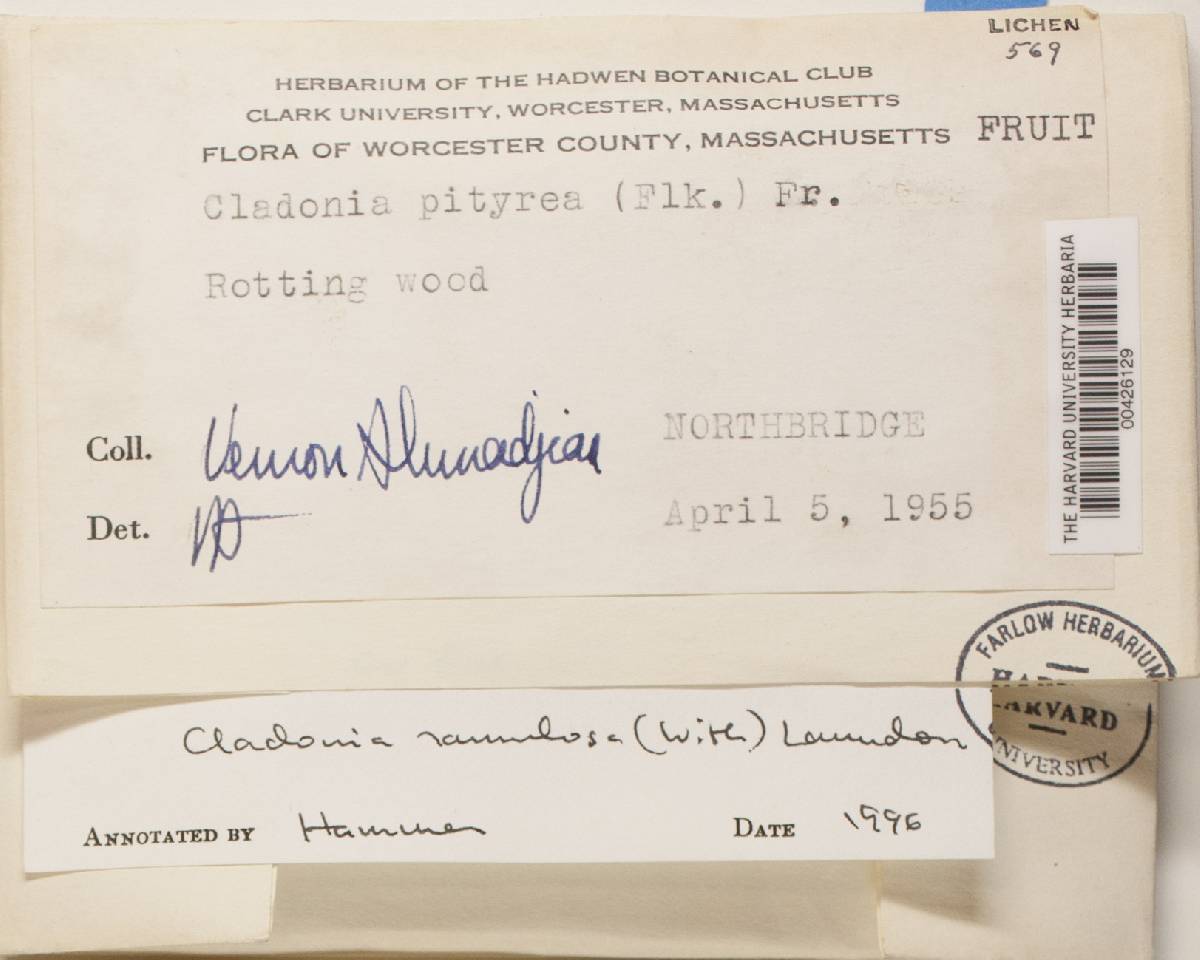 LICHEN
569
HERBARIUM OF THE HADWEN BOTANICAL CLUB
CLARK UNIVERSITY, WORCESTER, MASSACHUSETTS
FLORA OF WORCESTER COUNTY, MASSACHUSETTS FRUIT
Cladonia pityrea (Flk.) Fr.
Rotting wood
Coll. Vernon Ahmadjian NORTHBRIDGE
Det. VA April 5, 1955
THE HARVARD UNIVERSITY HERBARIA
00426129
FARLOW HERBARIUM
HARVARD
UNIVERSITY
Cladonia ramulosa (With) Laundon
ANNOTATED BY Hammer DATE 1996